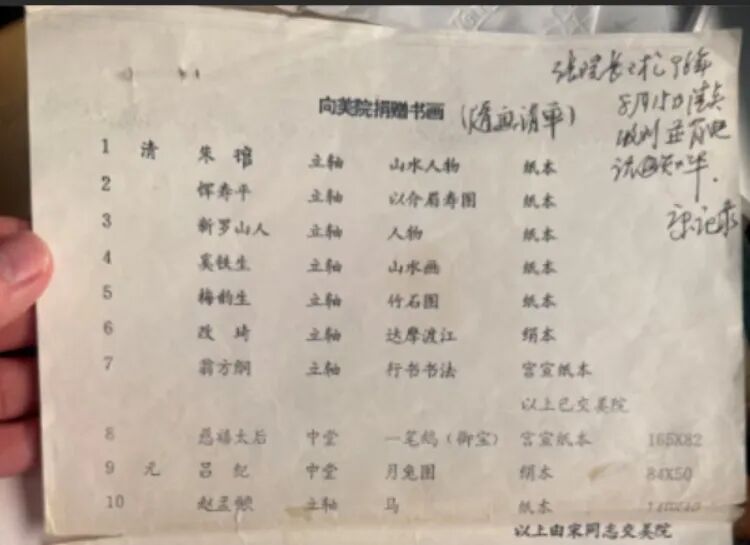 张院长之托96年
8月15日清点
向美院捐赠书画 (赠画清单)
1 清 朱 立轴 山水人物 纸本
2 恽寿平 立轴 以介眉寿图 纸本
3 新罗山人 立轴 人物 纸本
宋记录
4 奚铁生 立轴 山水画 纸本
5 梅韵生 立轴 竹石图 纸本
6 改 琦 立轴 达摩渡江 绢本
7 翁方纲 立轴 行书书法 宫宣纸本
以上已交美院
8 慈禧太后 中堂 一笔鹅（御宝） 宫宣纸本 165X82
9 元 吕 纪 中堂 月兔图 绢本 84X50
10 赵孟頫 立轴 马 纸本
以上由宋同志交美院